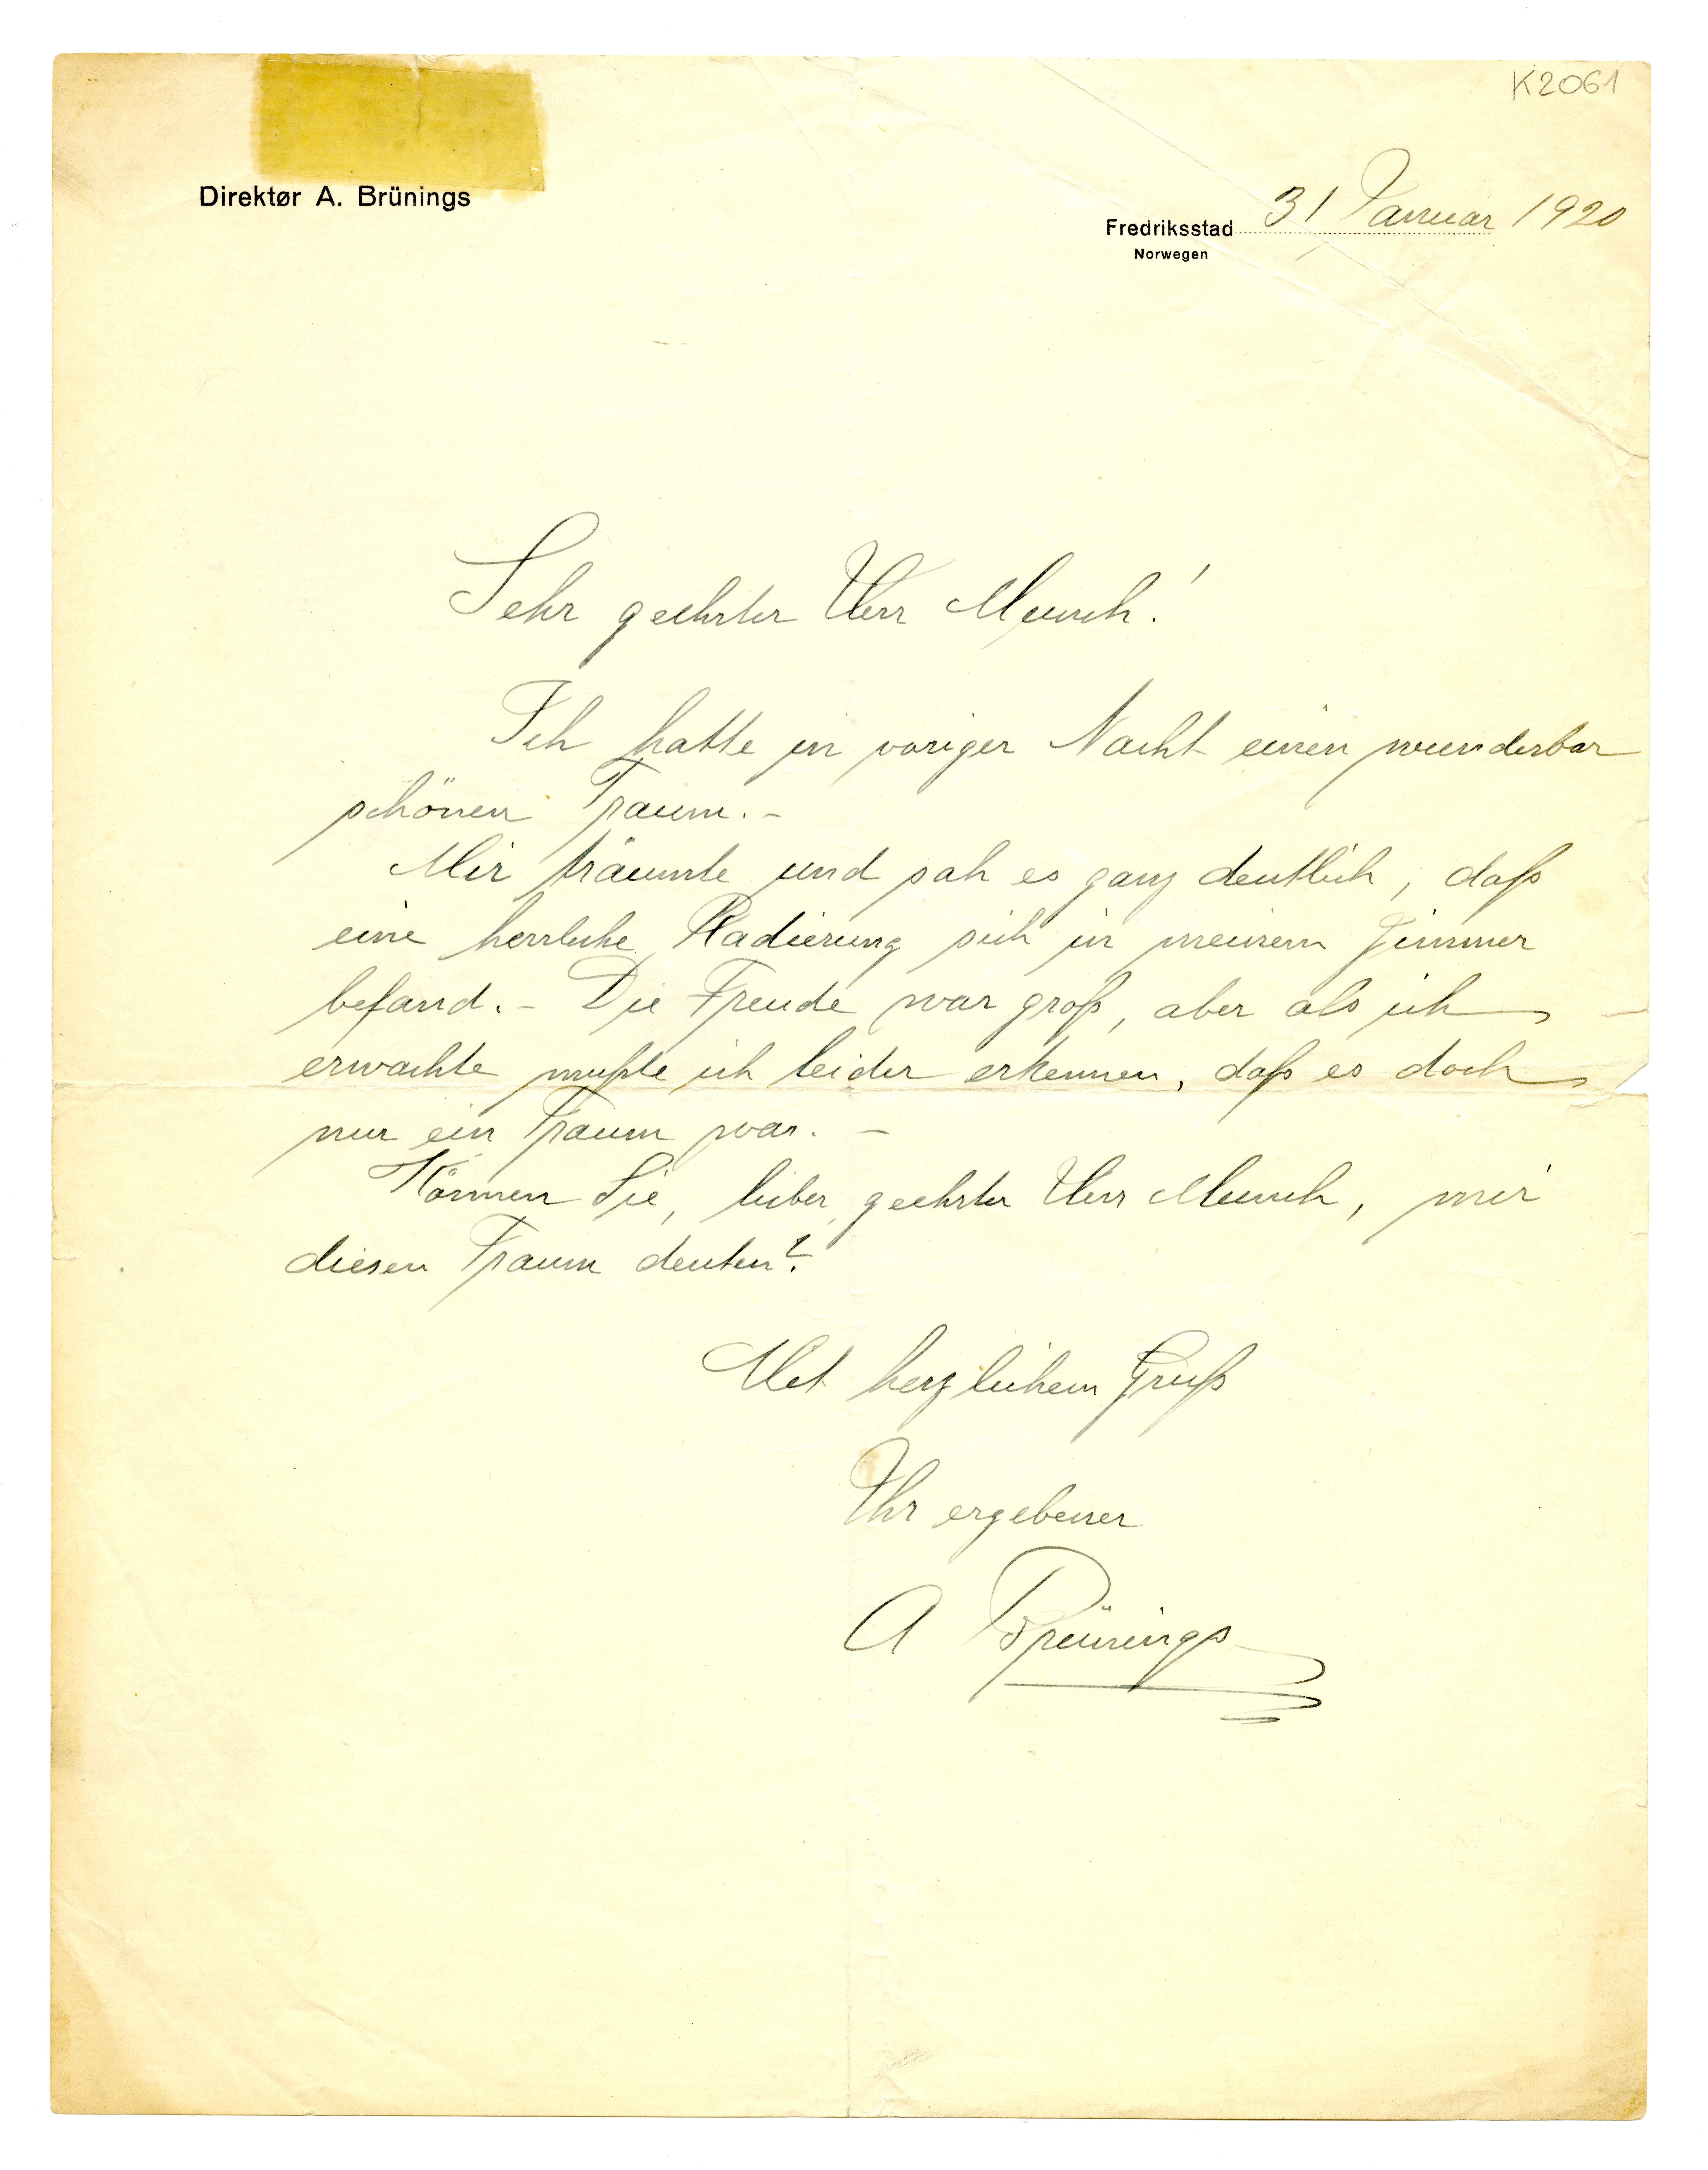 K2061
Direktør A. Brünings
Fredriksstad 31 Januar 1920
Norwegen
Sehr geehrter Herr Munch!
Ich hatte in voriger Nacht einen wunderbar
schönen Traum. -
Mir träumte und sah es ganz deutlich, daß
eine herrliche Radierung sich in meinem Zimmer
befand. - Die Freude war groß, aber als ich
erwachte mußte ich leider erkennen, daß es doch
nur ein Traum war. -
Können Sie, lieber, geehrter Herr Munch, mir
diesen Traum deuten?
Mit herzlichem Gruß
Ihr ergebener
A Brünings